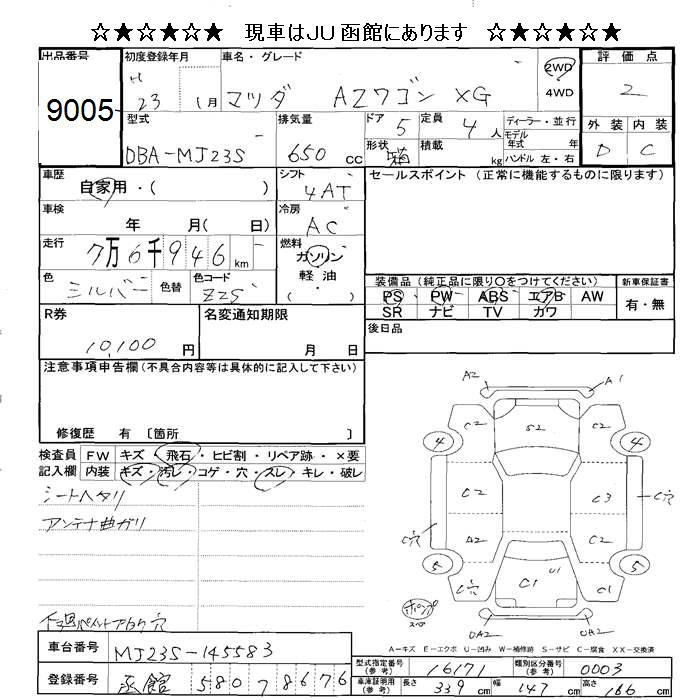 ☆★☆★☆★ 現車はJU函館にあります ☆★☆★☆★
出品番号 初度登録年月 車名・グレード 評価点
9005 H 23年 1月 マツダ AZワゴン XG 2WD 4WD 2
型式 排気量 ドア 5 定員 4人 ディーラー・並行 外装 内装
DBA-MJ23S 650cc 形状 箱 積載 kg モデル年式 年 D C
ハンドル 左・右
車歴 シフト セールスポイント (正常に機能するものに限ります)
自家用・( ) 4AT
車検 冷房
年 月( 日) AC
走行 7万6千946km 燃料 ガソリン
軽油
・( )
色 シルバー 色替 色コード Z2S
装備品(純正品に限り〇をつけてください) 新車保証書
PS PW ABS エアB AW 有・無
SR ナビ TV カワ
R券 名変通知期限 後日品
10,100円 月 日
注意事項申告欄(不具合内容等は具体的に記入して下さい)
修復歴 有 〔箇所 〕
検査員 FW キズ・飛石・ヒビ割・リペア跡・×要
記入欄 内装 キズ・汚レ・コゲ・穴・スレ・キレ・破レ
シートヘタリ
アンテナ曲ガリ
A2 A1
C2 S2 C2
4 4
C2 C3 C穴
C穴 A2 C2
5 5
C穴 C1 U1 C1
スペア
UA2 UA2
A-キズ E-エクボ U-凹み W-補修跡 S-サビ C-腐食 XX-交換済
車台番号 MJ23S-145583
型式指定番号(参考) 16171 類別区分番号(参考) 0003
登録番号 函館 580 7 8676
車庫証明用(参考) 長さ 339cm 幅 147cm 高さ 166cm